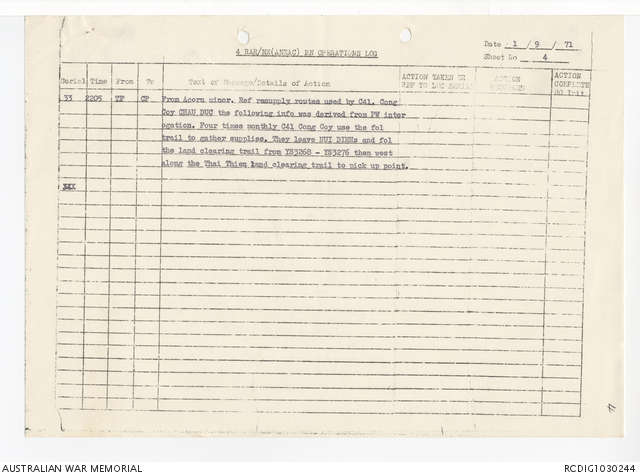 4 RAR/NZ(ANZAC) BN OPERATIONS LOG
Date 1 / 9 / 71
Sheet No 4
Serial Time From To Text of Message/Details of Action ACTION TAKEN OR REF TO LOG SERIAL ACTION ACTION COMPLETE
33 2205 TF CP From Acorn minor. Ref resupply routes used by C41. Cong
Coy CHAU DUC the following info was derived from PW inter
ogation. Four times monthly C41 Cong Coy use the fol
trail to gather supplies. They leave NUI DINHs and fol
the land clearing trail from YS3268 - YS3276 then west
along the Thai Thien land clearing trail to pick up point.
AUSTRALIAN WAR MEMORIAL
RCDIG1030244